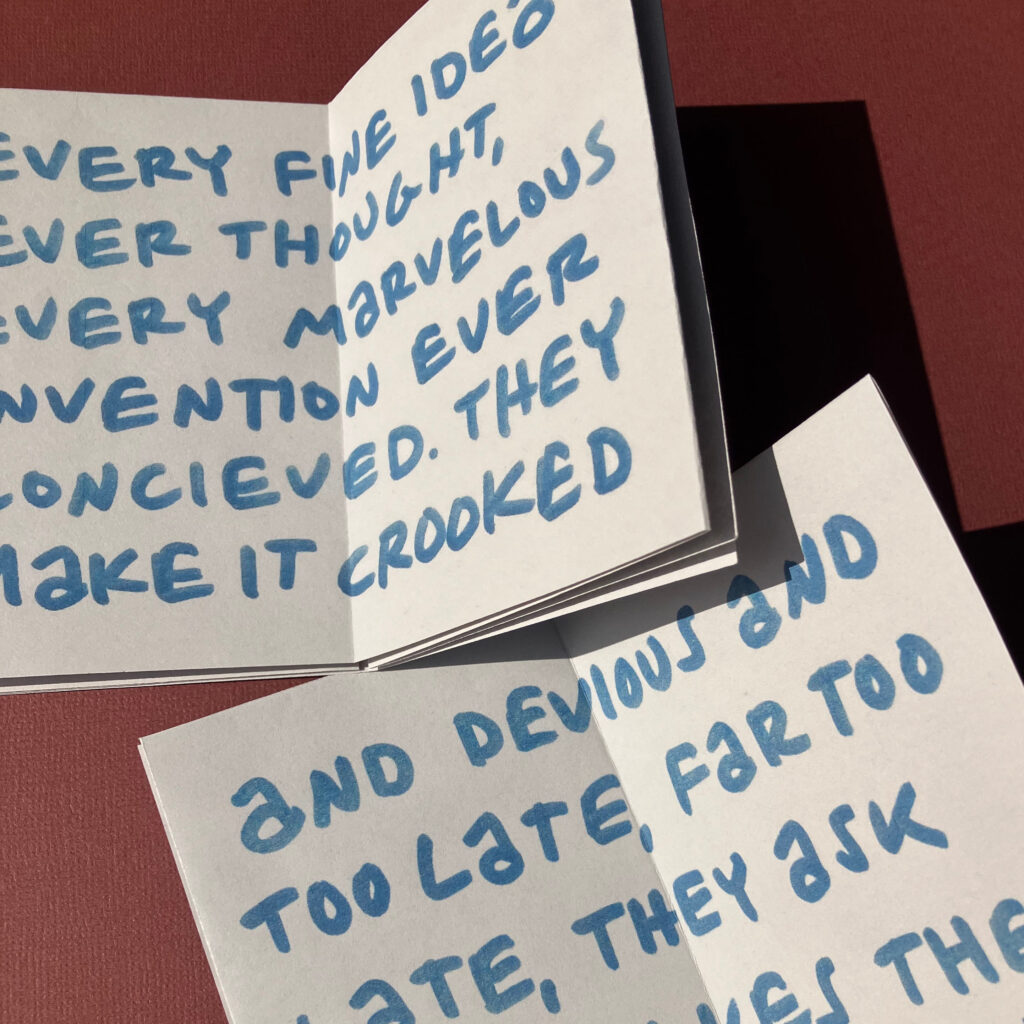 EVERY FINE IDEA
EVER THOUGHT,
EVERY MARVELOUS
INVENTION EVER
CONCIEVED. THEY
MAKE IT CROOKED
AND DEVIOUS AND
TOO LATE, FAR TOO
LATE, THEY ASK
THE